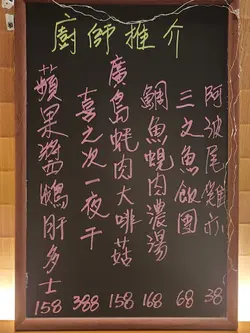 廚師推介
阿波尾雞亦 38
三文魚飯團 68
鯛魚蜆肉濃湯 168
廣島蚝肉大啡菇 158
喜之次一夜干 388
蘋果醬鴨肝多士 158